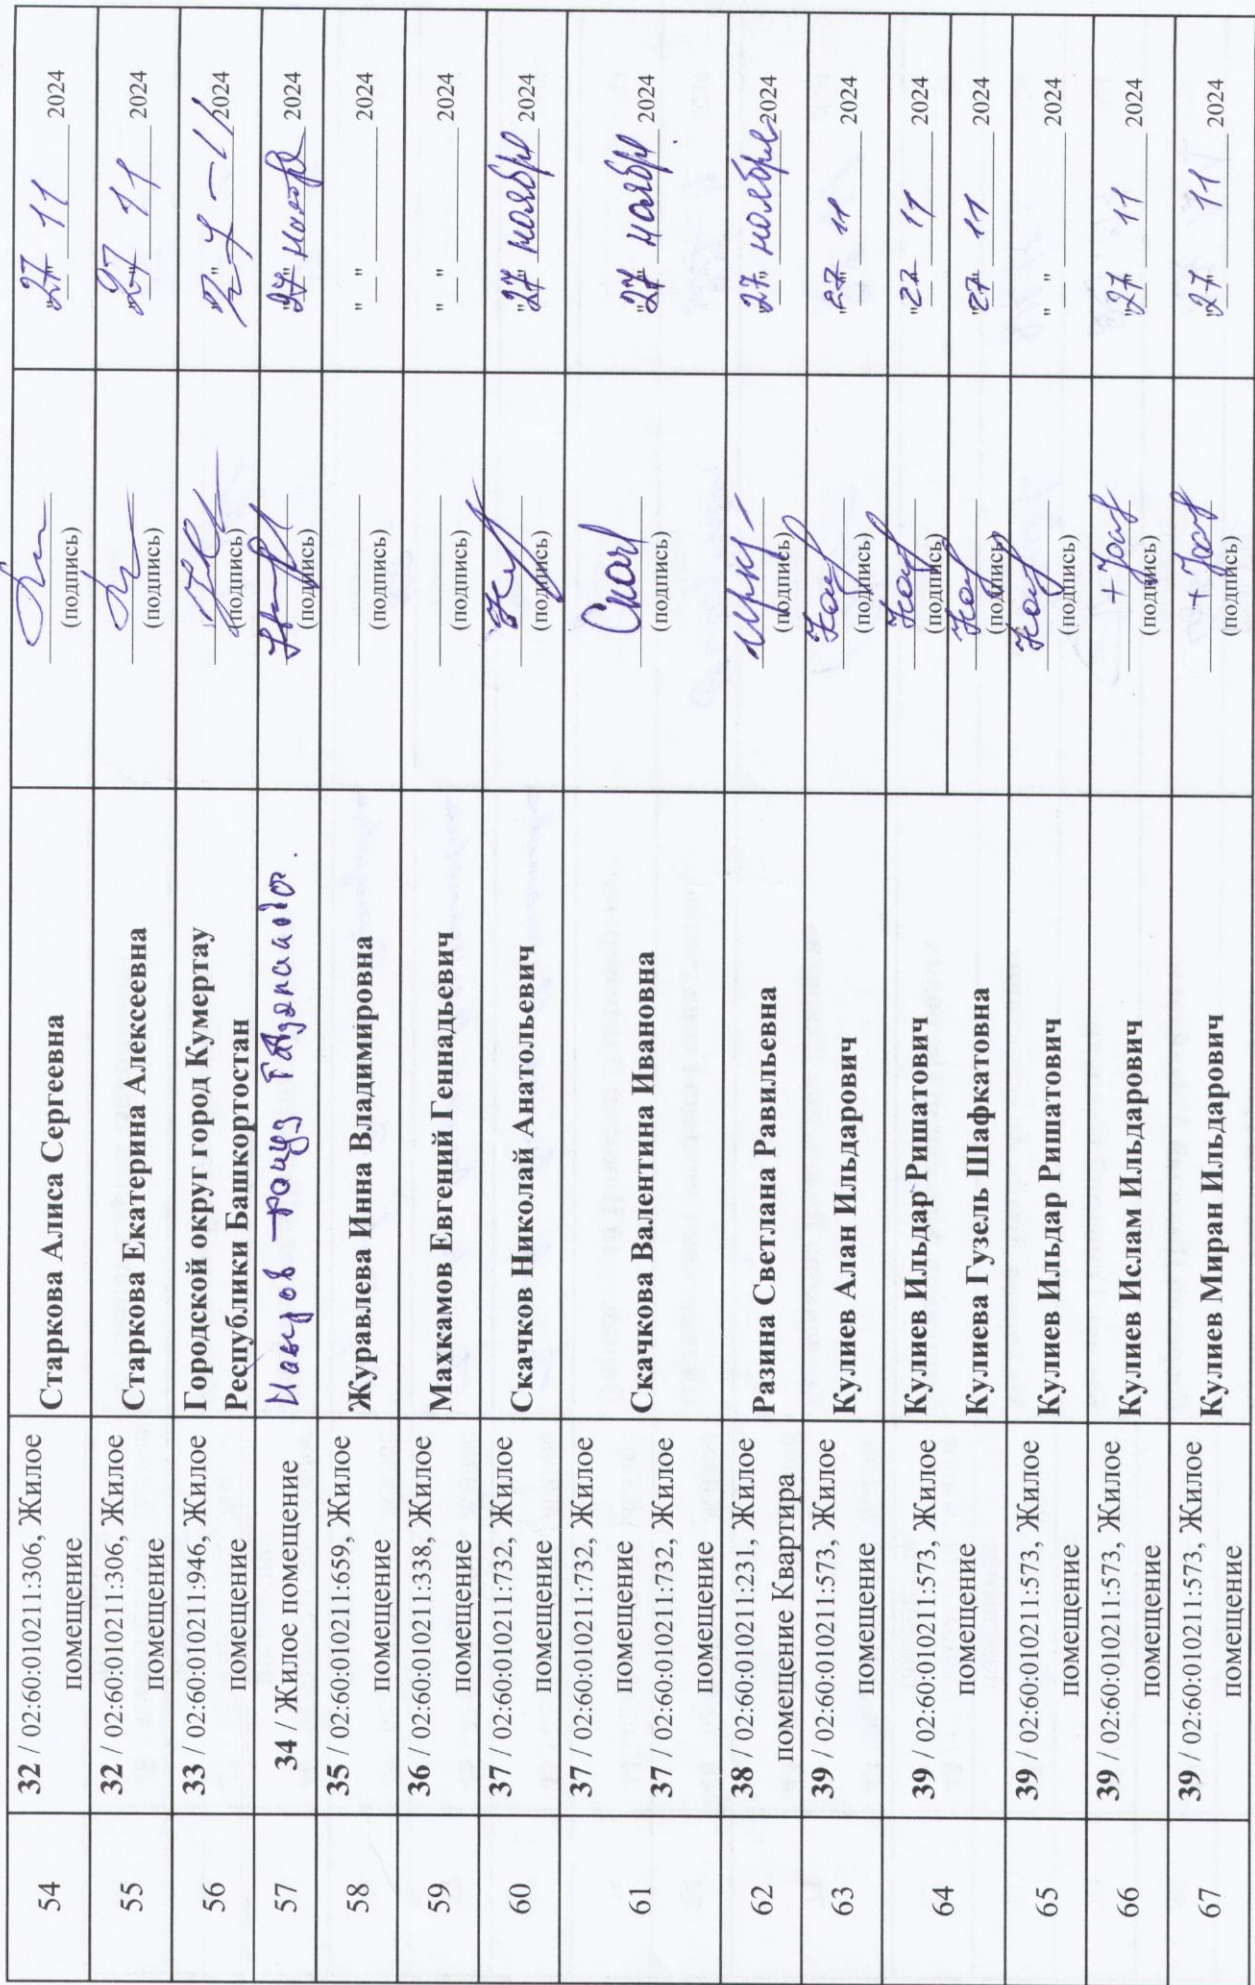 54 32 / 02:60:010211:306, Жилое помещение Старкова Алиса Сергеевна (подпись) "27" 11 2024
55 32 / 02:60:010211:306, Жилое помещение Старкова Екатерина Алексеевна (подпись) "27" 11 2024
56 33 / 02:60:010211:946, Жилое помещение Городской округ город Кумертау Республики Башкортостан (подпись) "27" - 11 2024
57 34 / Жилое помещение (подпись) "27" ноября 2024
58 35 / 02:60:010211:659, Жилое помещение Журавлева Инна Владимировна (подпись) "__" 2024
59 36 / 02:60:010211:338, Жилое помещение Махкамов Евгений Геннадьевич (подпись) "__" 2024
60 37 / 02:60:010211:732, Жилое помещение Скачков Николай Анатольевич (подпись) "27" ноября 2024
61 37 / 02:60:010211:732, Жилое помещение
37 / 02:60:010211:732, Жилое помещение Скачкова Валентина Ивановна (подпись) "27" ноября 2024
62 38 / 02:60:010211:231, Жилое помещение Квартира Разина Светлана Равильевна (подпись) 27 ноября 2024
63 39 / 02:60:010211:573, Жилое помещение Кулиев Алан Ильдарович (подпись) "27" 11 2024
64 39 / 02:60:010211:573, Жилое помещение Кулиев Ильдар Ришатович (подпись) "27" 11 2024
Кулиева Гузель Шафкатовна (подпись) "27" 11 2024
65 39 / 02:60:010211:573, Жилое помещение Кулиев Ильдар Ришатович (подпись) " " 2024
66 39 / 02:60:010211:573, Жилое помещение Кулиев Ислам Ильдарович (подпись) "27" 11 2024
67 39 / 02:60:010211:573, Жилое помещение Кулиев Миран Ильдарович (подпись) "27" 11 2024